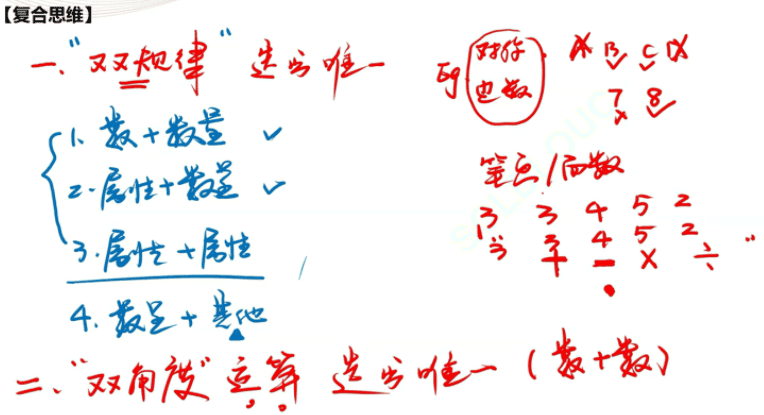 【复合思维】
一、“双规律” 选出唯一
1. 数+数量 ✓
2. 属性+数量 ✓
3. 属性+属性
4. 数量+其他
eg 对称 A B C D
也数 7 8
笔画/面数
13 3 4 5 2
3 3 4 5 2
+ - × ÷
二、“双角度”运算 选出唯一(数+数)